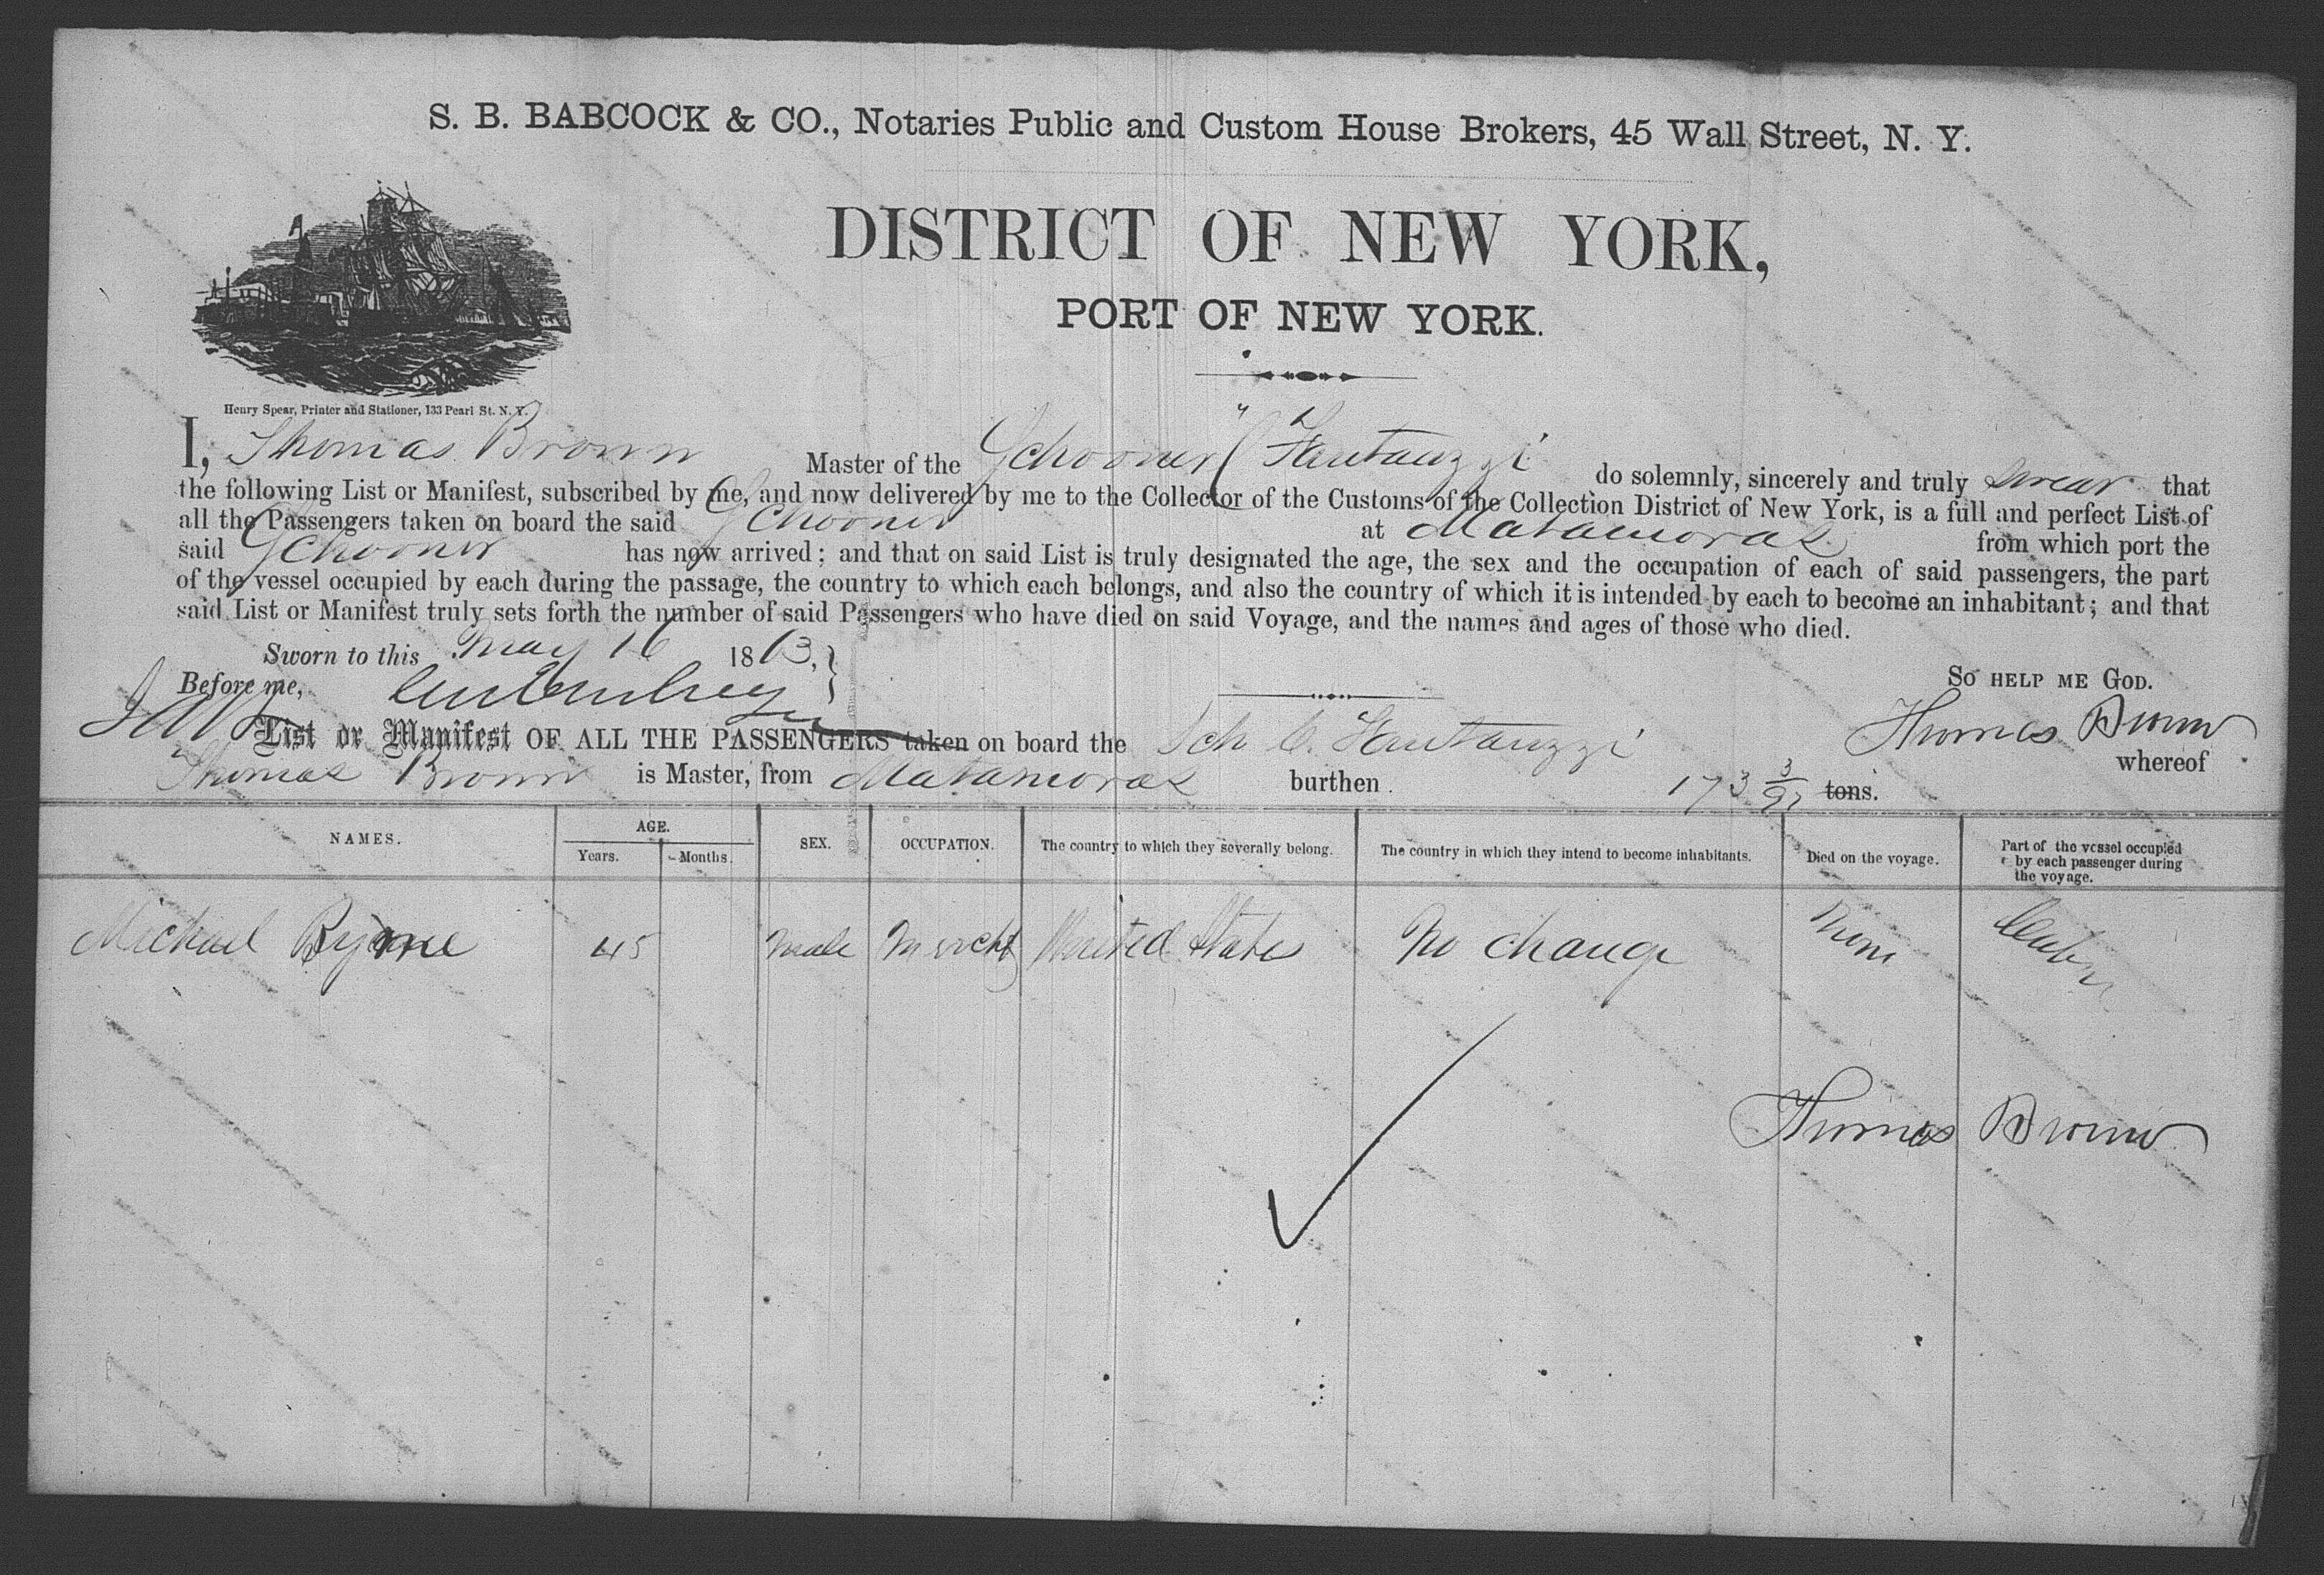 S. B. BABCOCK & CO., Notaries Public and Custom House Brokers, 45 Wall Street, N. Y.
DISTRICT OF NEW YORK,
PORT OF NEW YORK.
Henry Spear, Printer and Stationer, 133 Pearl St. N. Y.
I, Thomas Brown Master of the Schooner "C Fantauzzi do solemnly, sincerely and truly swear that
the following List or Manifest, subscribed by me, and now delivered by me to the Collector of the Customs of the Collection District of New York, is a full and perfect List of
all the Passengers taken on board the said Schooner at Matamoras from which port the
said Schooner has now arrived; and that on said List is truly designated the age, the sex and the occupation of each of said passengers, the part
of the vessel occupied by each during the passage, the country to which each belongs, and also the country of which it is intended by each to become an inhabitant; and that
said List or Manifest truly sets forth the number of said Passengers who have died on said Voyage, and the names and ages of those who died.
Sworn to this May 16 1863,
Before me,
So help me God.
Thomas Brown
List or Manifest OF ALL THE PASSENGERS taken on board the Sch C. Fantauzzi whereof
Thomas Brown is Master, from Matamoras burthen 173 3/95 tons.
NAMES. AGE. Years. Months. SEX. OCCUPATION. The country to which they severally belong. The country in which they intend to become inhabitants. Died on the voyage. Part of the vessel occupied by each passenger during the voyage.
Michael Byrne 45 Male Mercht United States No change None Cabin
Thomas Brown